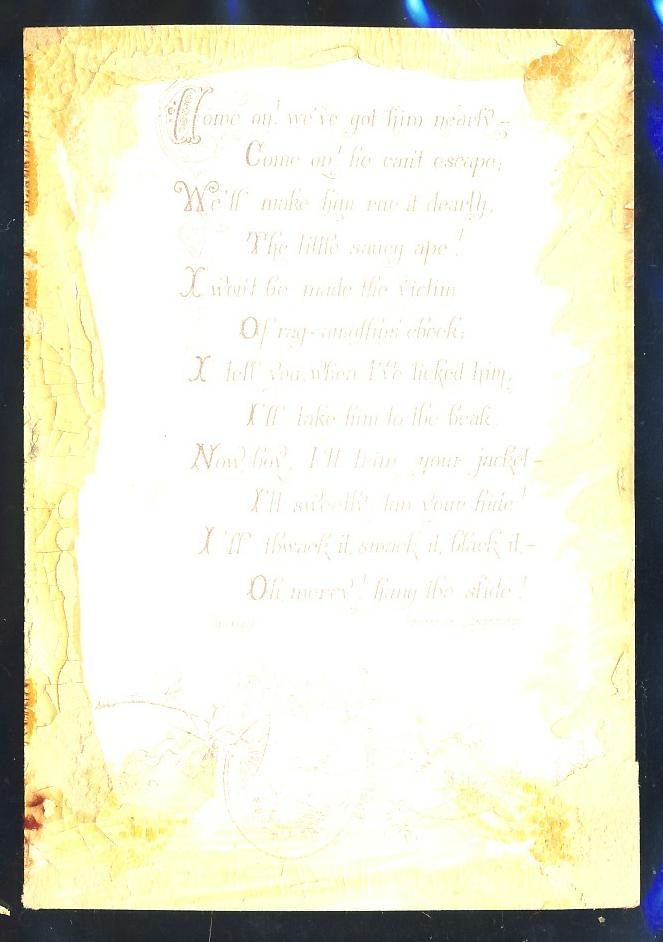 Come on! we've got him nearly –
Come on! he can't escape;
We'll make him rue it dearly,
The little saucy ape!
I won't be made the victim
Of rag-amuffins' cheek;
I tell you, when I've licked him,
I'll take him to the beak.
Now boy, I'll trim your jacket –
I'll sweetly tan your hide!
I'll thwack it, smack it, black it, –
Oh, mercy! hang the slide!